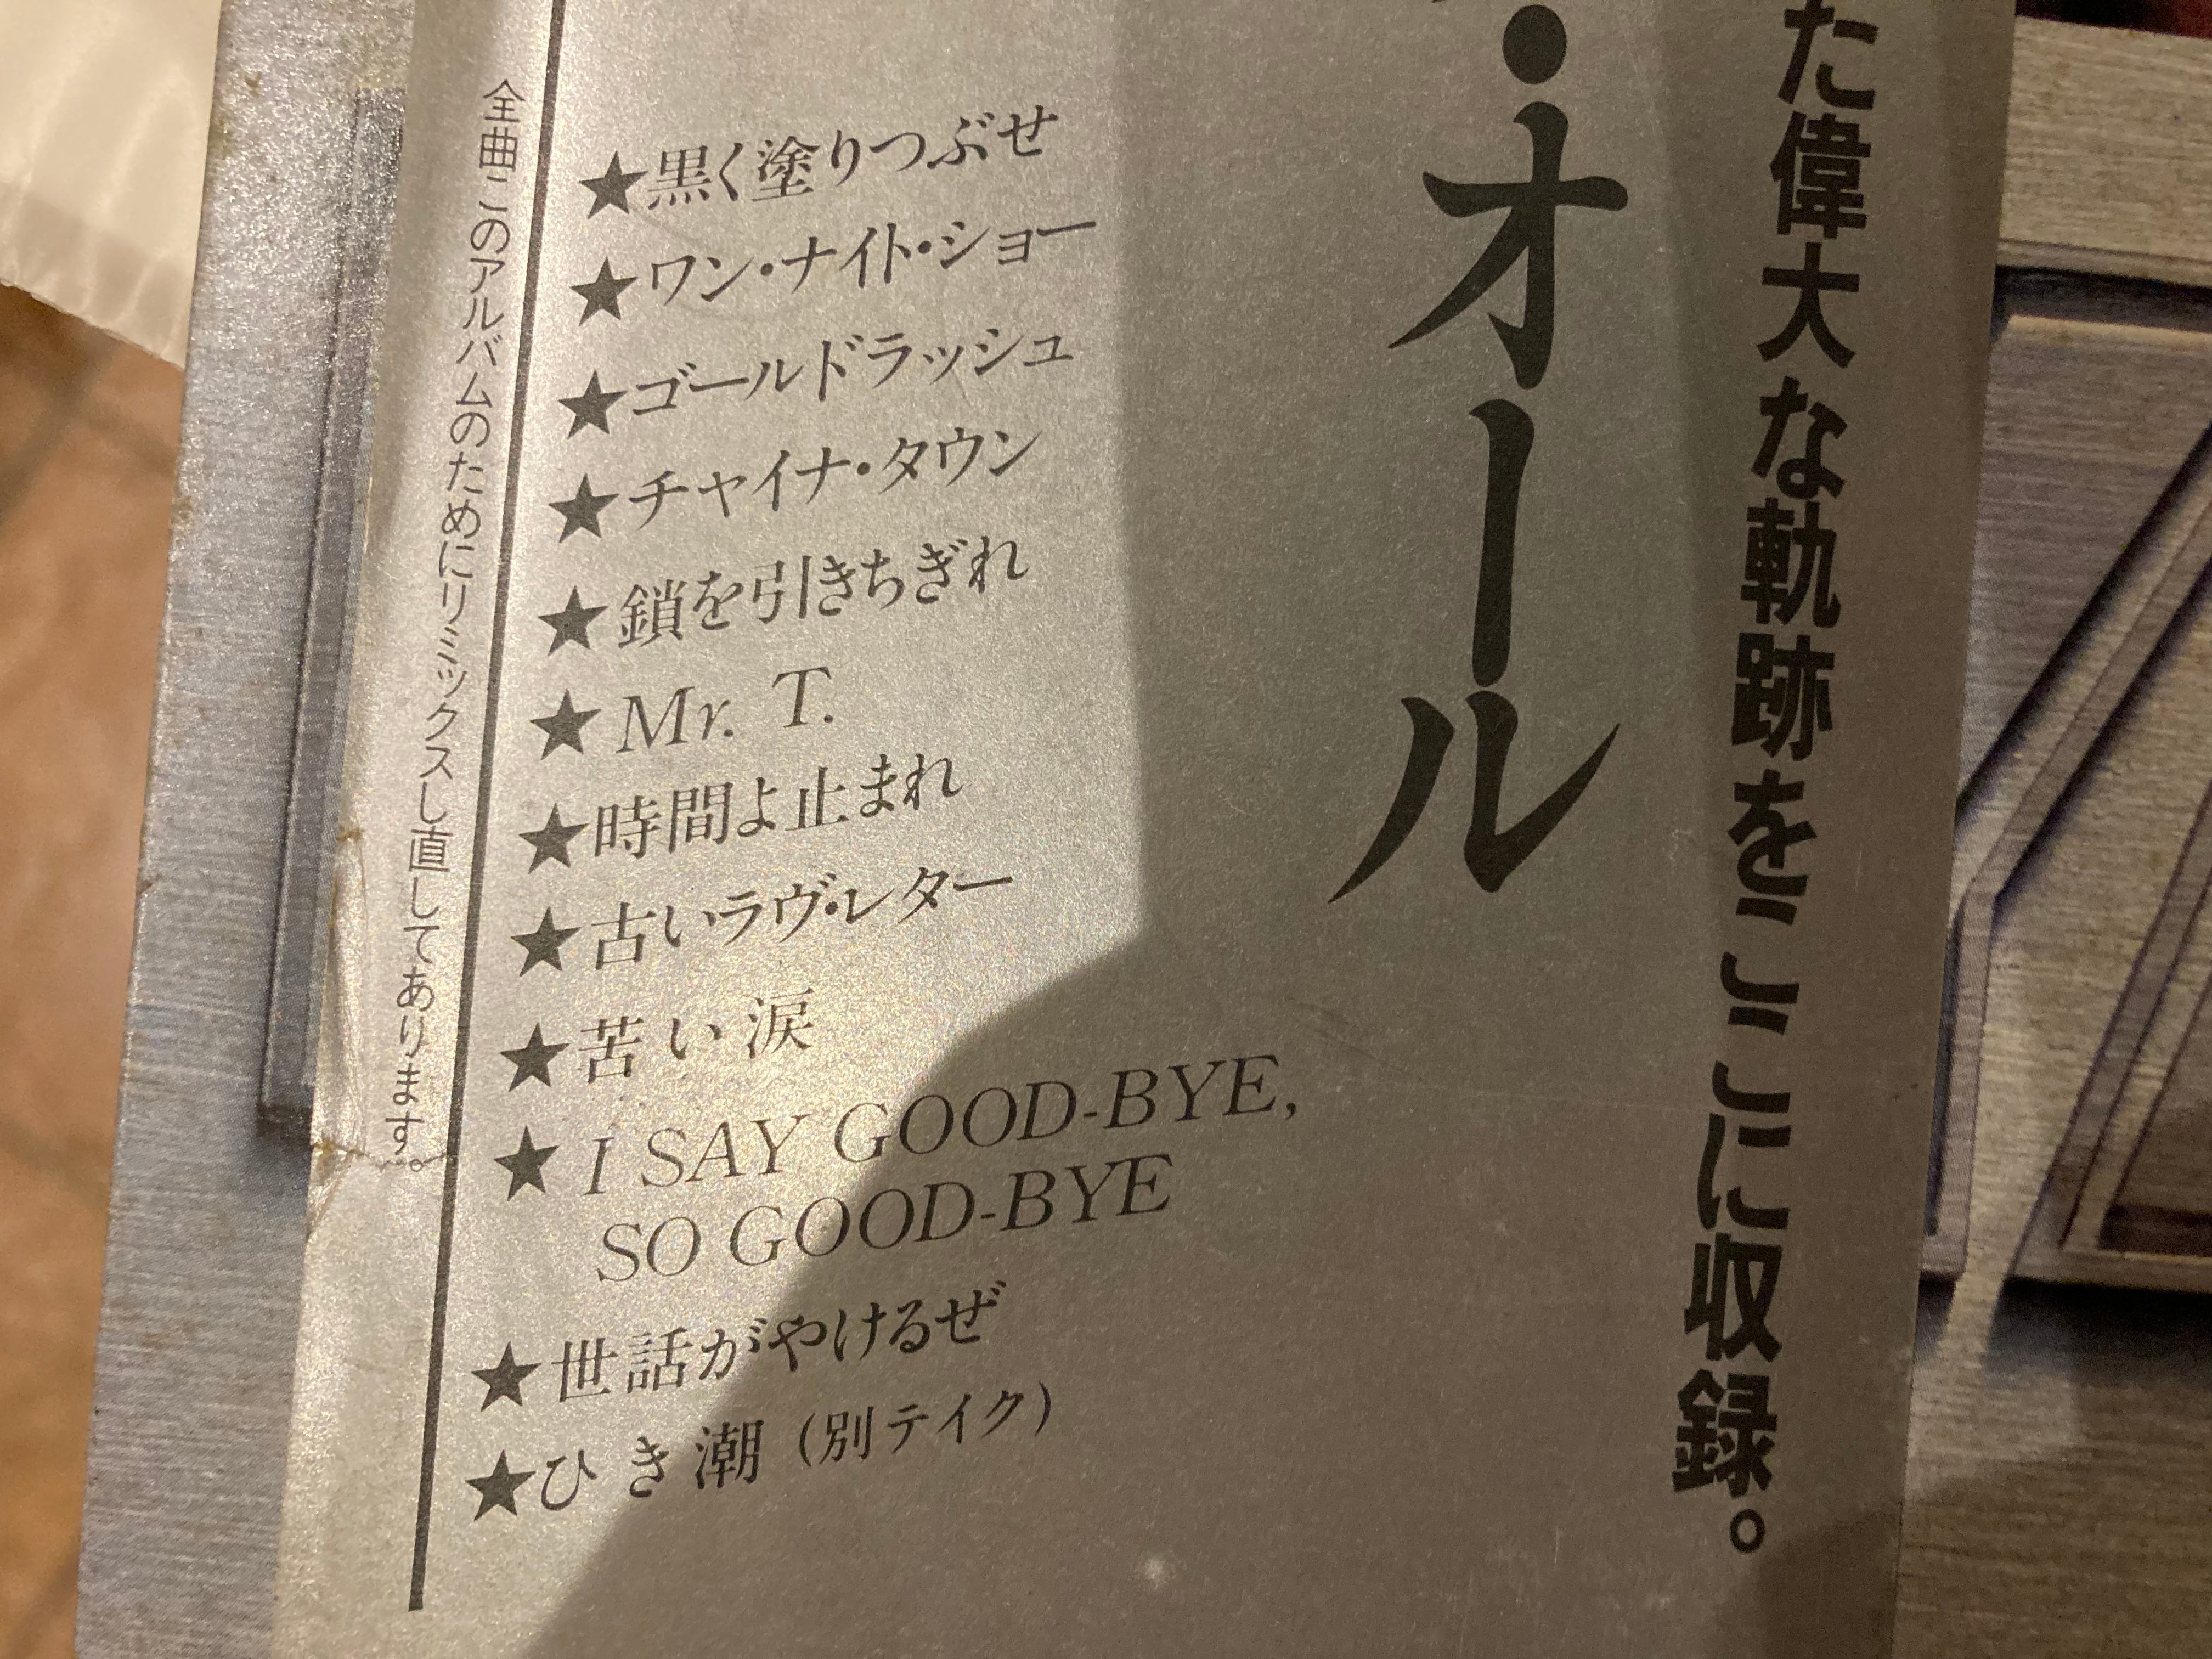 た偉大な軌跡をここに収録。
・オール
★黒く塗りつぶせ
★ワン・ナイト・ショー
★ゴールドラッシュ
★チャイナ・タウン
★鎖を引きちぎれ
★Mr. T.
★時間よ止まれ
★古いラヴ・レター
★苦い涙
★I SAY GOOD-BYE,
SO GOOD-BYE
★世話がやけるぜ
★ひき潮(別テイク)
全曲このアルバムのためにリミックスし直してあります。